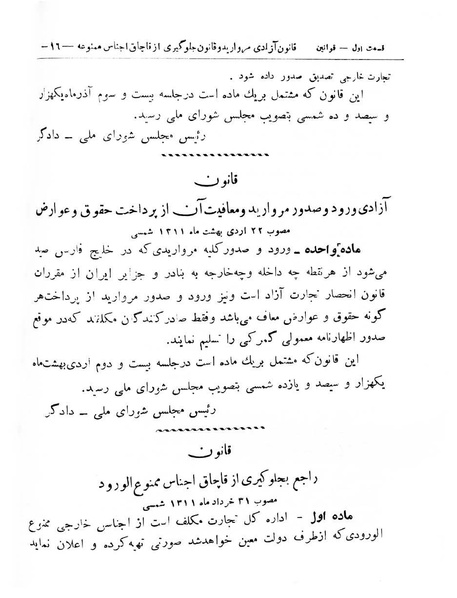 قسمت اول — قوانین   قانون آزادی مروارید و قانون جلوگیری از قاچاق اجناس ممنوعه — ۱۶ —
تجارت خارجی تصدیق صدور داده شود .
این قانون که مشتمل بریك ماده است درجلسه بیست و سوم آذرماه یکهزار
و سیصد و ده شمسی بتصویب مجلس شورای ملی رسید.
رئیس مجلس شورای ملی ــ دادگر
قانون
آزادی ورود و صدور مروارید و معافیت آن از پرداخت حقوق و عوارض
مصوب ۲۲ اردی بهشت ماه ۱۳۱۱ شمسی
ماده واحده ــ ورود و صدور کلیه مرواریدی که در خلیج فارس صید
می‌شود از هرنقطه چه داخله وچه خارجه به بنادر و جزایر ایران از مقررات
قانون انحصار تجارت آزاد است ونیز ورود و صدور مروارید از پرداخت هر
گونه حقوق و عوارض معاف می‌باشد وفقط صادرکنندگان مکلفند که در موقع
صدور اظهارنامه معمولی گمرکی را تسلیم نمایند.
این قانون که مشتمل بریك ماده است درجلسه بیست و دوم اردی بهشت ماه
یکهزار و سیصد و یازده شمسی بتصویب مجلس شورای ملی رسید.
رئیس مجلس شورای ملی ــ دادگر
قانون
راجع بجلوگیری از قاچاق اجناس ممنوع الورود
مصوب ۳۱ خرداد ماه ۱۳۱۱ شمسی
ماده اول ــ اداره کل تجارت مکلف است از اجناس خارجی ممنوع
الورودی که ازطرف دولت معین خواهدشد صورتی تهیه کرده و اعلان نماید